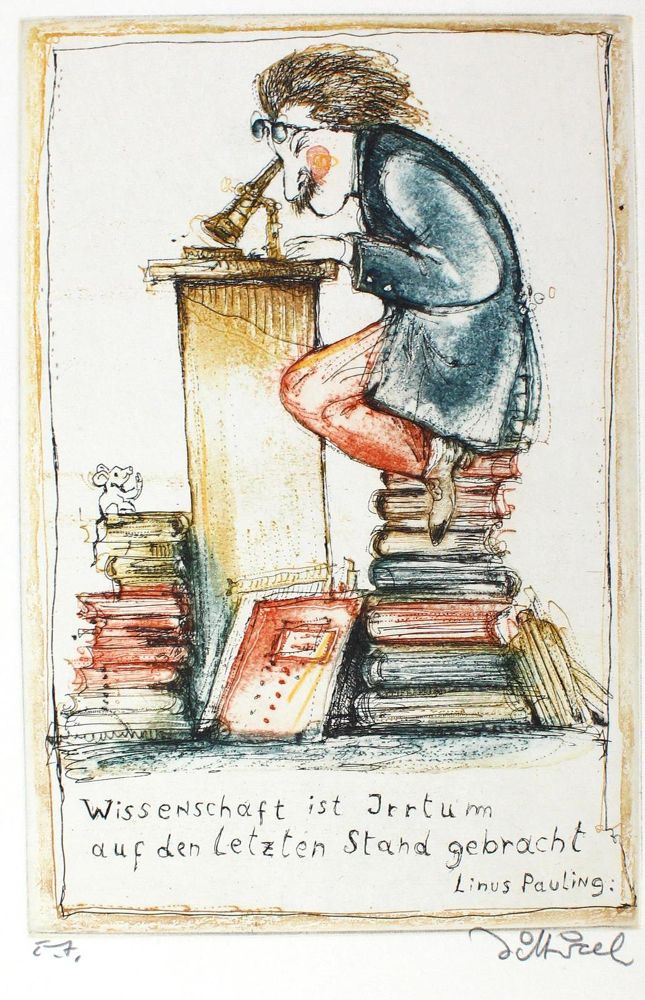 Wissenschaft ist Irrtum
auf den letzten Stand gebracht
Linus Pauling: